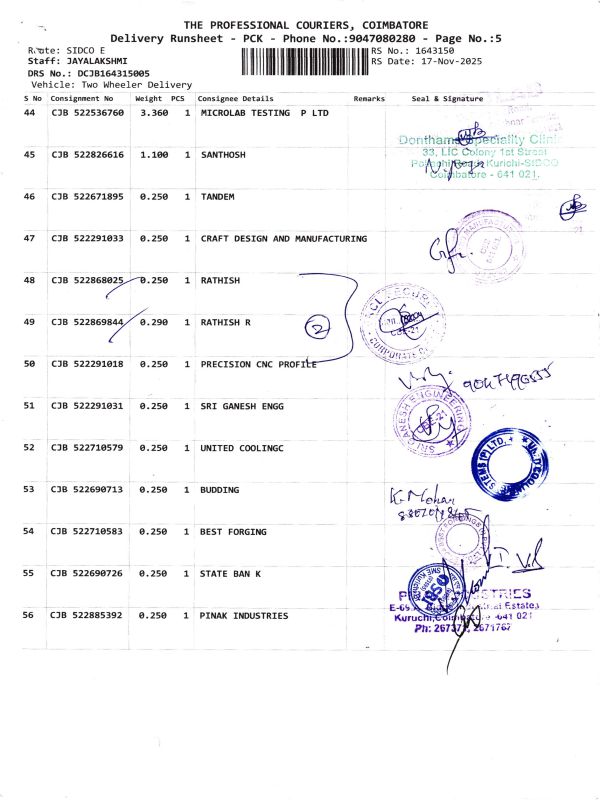 THE PROFESSIONAL COURIERS, COIMBATORE
Delivery Runsheet - PCK - Phone No.:9047080280 - Page No.:5
Route: SIDCO E
RS No.: 1643150
Staff: JAYALAKSHMI
RS Date: 17-Nov-2025
DRS No.: DCJB164315005
Vehicle: Two Wheeler Delivery
S No Consignment No Weight PCS Consignee Details Remarks Seal & Signature
44 CJB 522536760 3.360 1 MICROLAB TESTING P LTD
Donthams Speciality Clinic
33, LIC Colony 1st Street
Kurichi-SIDCO
Coimbatore - 641 021.
45 CJB 522826616 1.100 1 SANTHOSH
46 CJB 522671895 0.250 1 TANDEM
47 CJB 522291033 0.250 1 CRAFT DESIGN AND MANUFACTURING
48 CJB 522868025 0.250 1 RATHISH
49 CJB 522869844 0.290 1 RATHISH R
2
50 CJB 522291018 0.250 1 PRECISION CNC PROFILE
51 CJB 522291031 0.250 1 SRI GANESH ENGG
SRI GANESH ENGINEERING
52 CJB 522710579 0.250 1 UNITED COOLINGC
53 CJB 522690713 0.250 1 BUDDING
K. Mohan
54 CJB 522710583 0.250 1 BEST FORGING
55 CJB 522690726 0.250 1 STATE BAN K
56 CJB 522885392 0.250 1 PINAK INDUSTRIES
Estate,
Kuruchi, Coimbatore -641 021